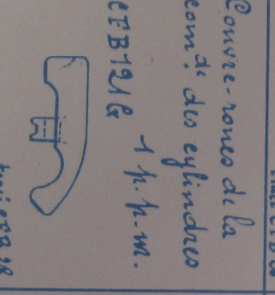 Couvre-roues de la
com.de des cylindres
CFB121G
1 p. p. m.